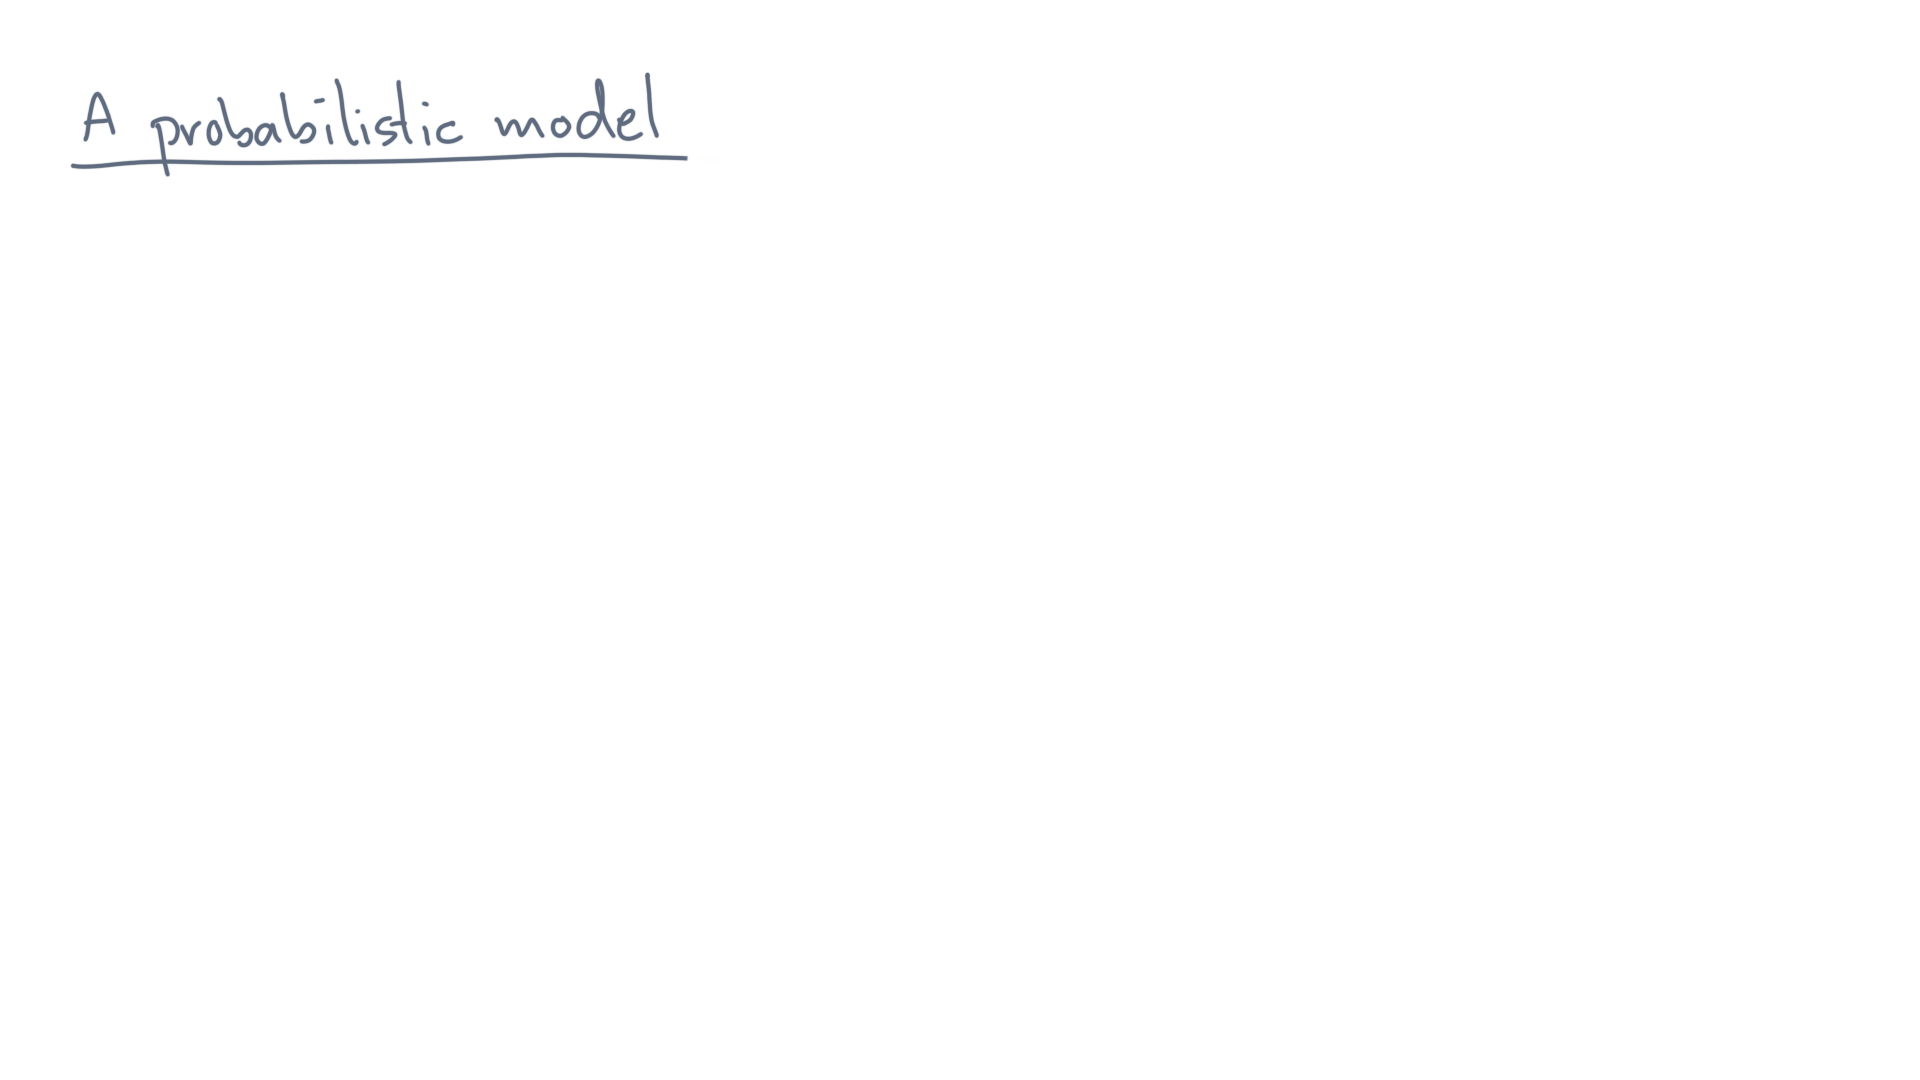 A probabilistic model